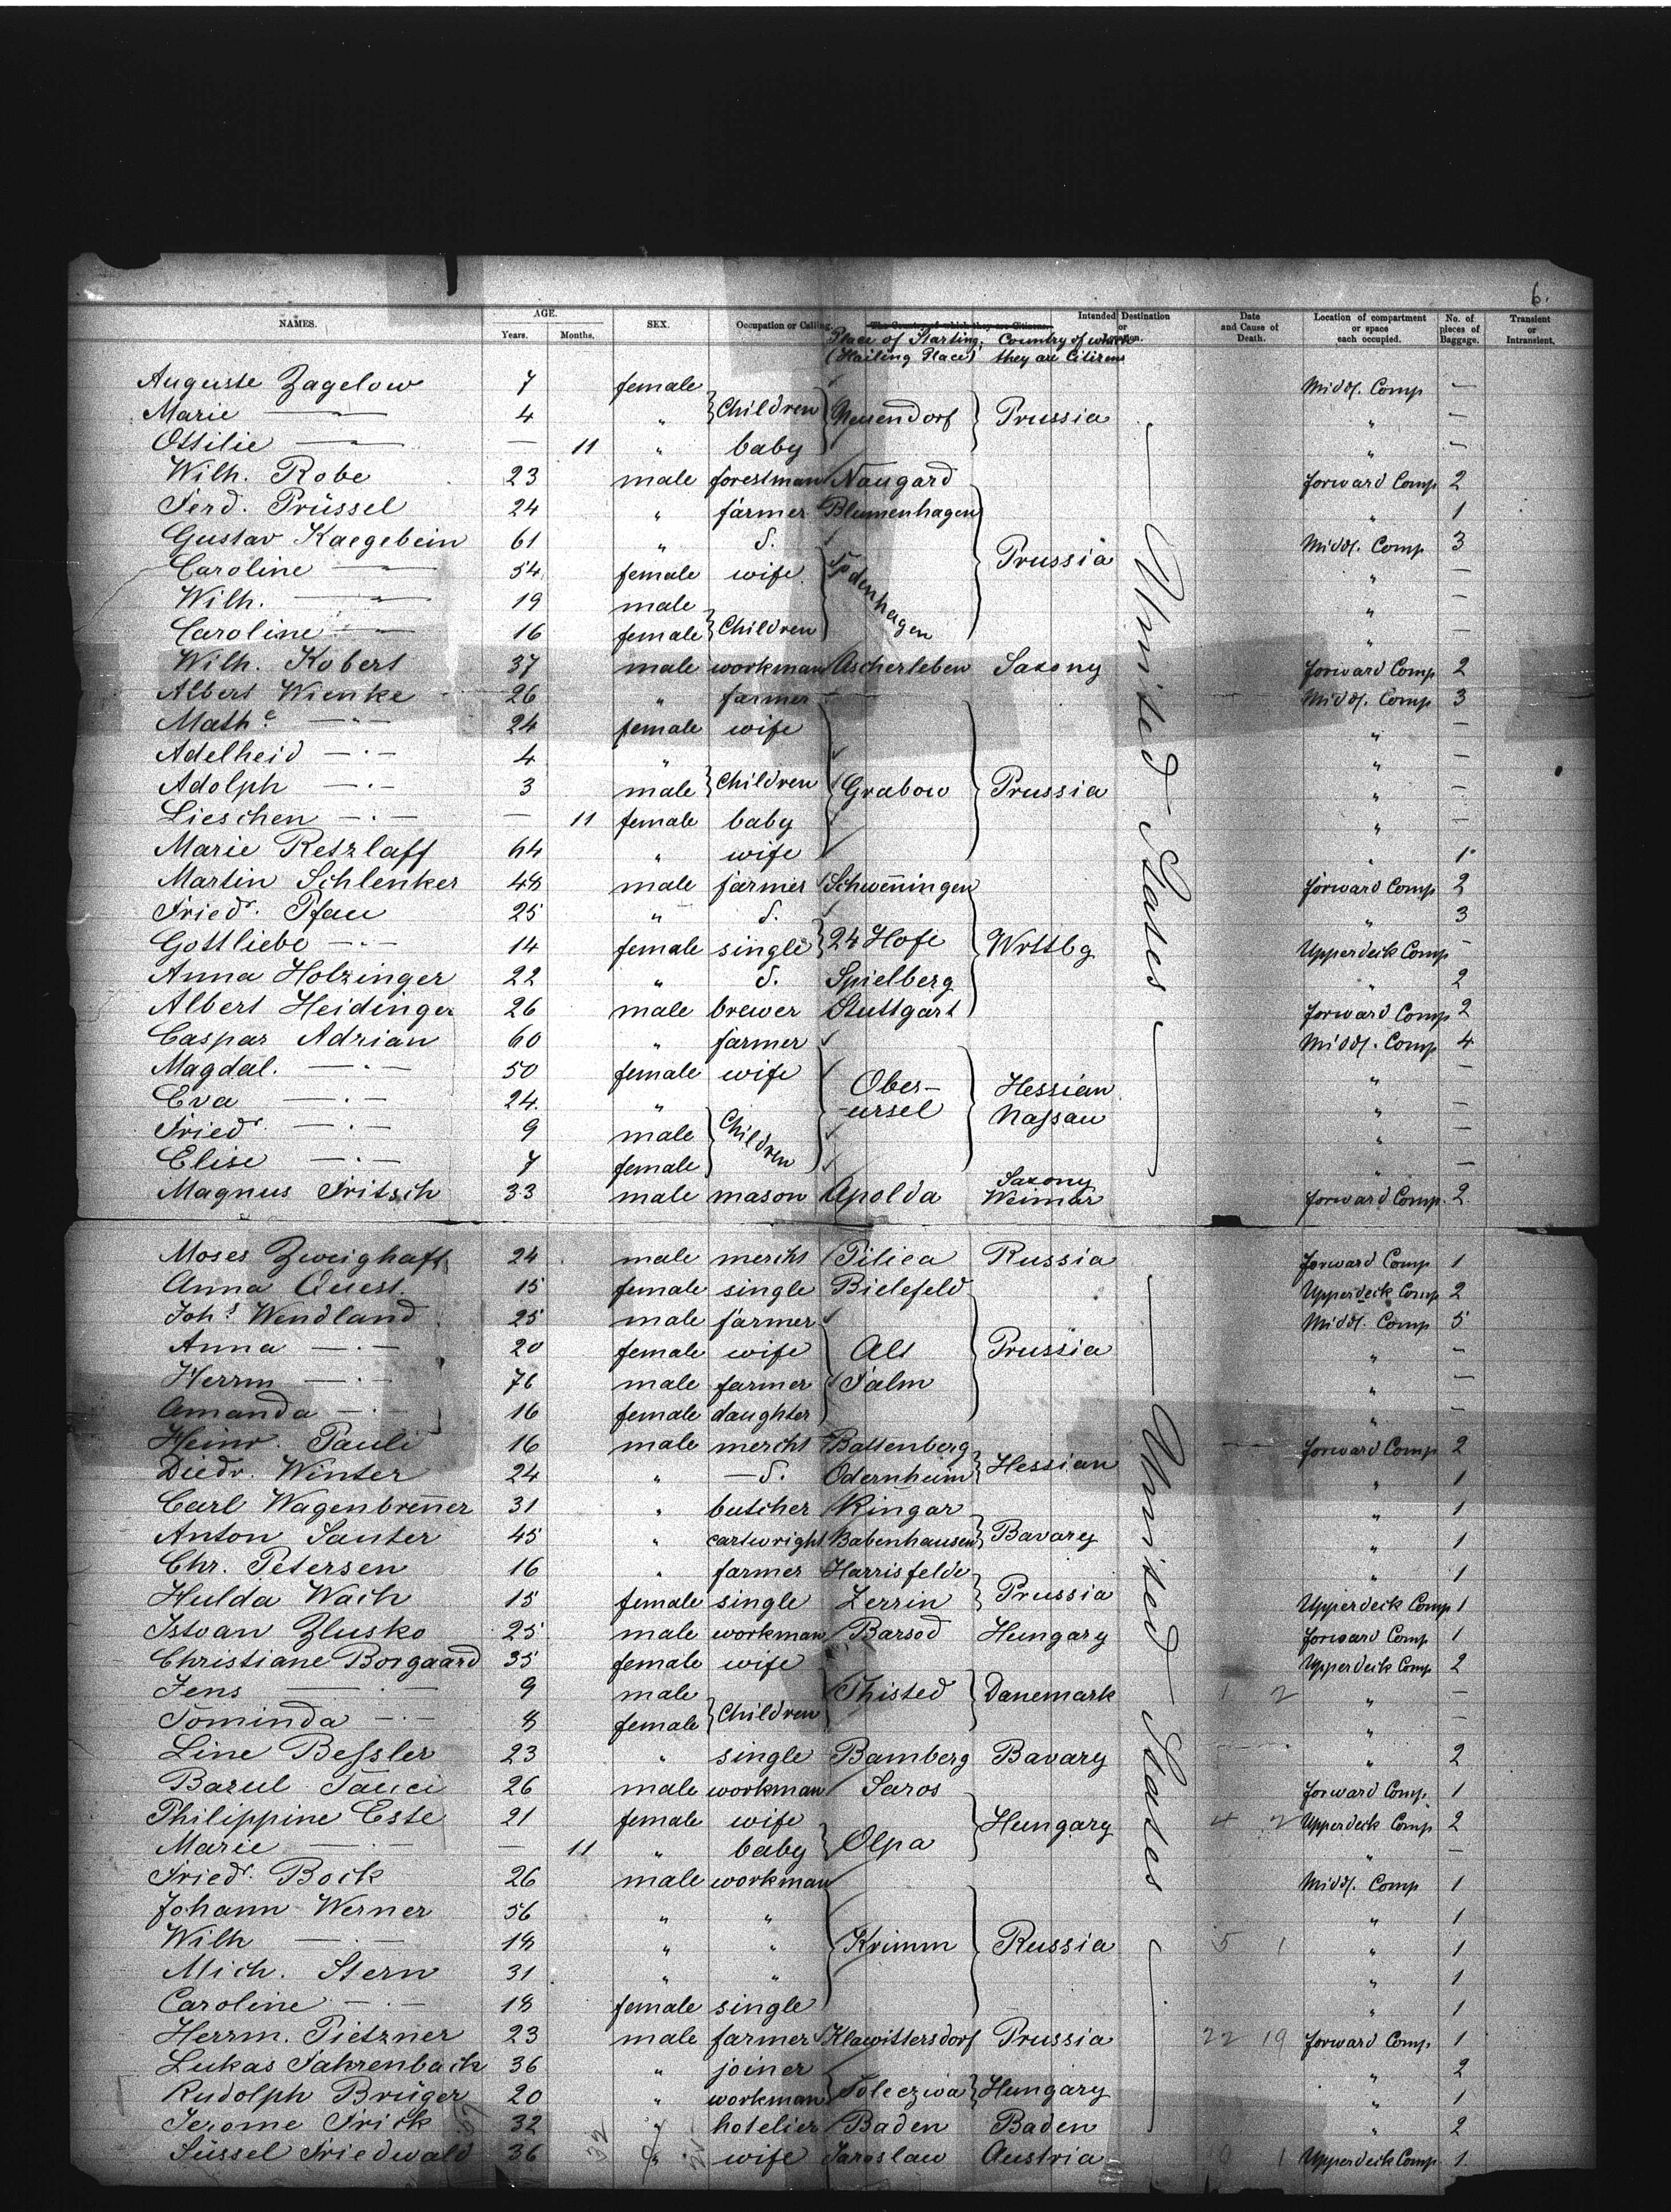 6.
NAMES. AGE. Years. Months. SEX. Occupation or Calling. The Country of which they are Citizens. Intended Destination or Location. Date and Cause of Death. Location of compartment or space each occupied. No. of pieces of Baggage. Transient or Intransient.
Place of Starting, (Hailing Place) Country of which they are Citizens
Auguste Zagelow 7 female Children Neuendorf Prussia United States Middl. Comp —
Marie — 4 " " —
Ottilie — — 11 " baby " —
Wilh. Robe 23 male forestman Naugard Prussia forward Comp 2
Ferd. Prüssel 24 " farmer Blumenhagen " 1
Gustav Kaegebein 61 " d. Middl. Comp 3
Caroline — 54 female wife " —
Wilh. — 19 male Children " —
Caroline — 16 female " —
Wilh. Kobert 37 male workman Ascherleben Saxony forward Comp 2
Albert Wienke 26 " farmer Grabow Prussia Middl. Comp 3
Mathe — 24 female wife " —
Adelheid — 4 " Children " —
Adolph — 3 male " —
Lieschen — — 11 female baby " —
Marie Retzlaff 64 " wife " 1
Martin Schlenker 48 male farmer Schwenningen Wrttbg forward Comp 2
Friedr. Pfau 25 " d. 24 Hofe " 3
Gottliebe — 14 female single Upperdeck Comp —
Anna Holzinger 22 " d. Spielberg " 2
Albert Heidinger 26 male brewer Stuttgart forward Comp 2
Caspar Adrian 60 " farmer Ober-ursel Hessian Nassau Middl. Comp 4
Magdal. — 50 female wife " —
Eva — 24 " Children " —
Friedr. — 9 male " —
Elise — 7 female " —
Magnus Fritsch 33 male mason Apolda Saxony Weimar forward Comp. 2
Moses Zweighaft 24 male mercht Pilica Russia United States forward Comp 1
Anna Quest. 15 female single Bielefeld Prussia Upperdeck Comp 2
Johs Wendland 25 male farmer Middl. Comp 5
Anna — 20 female wife Alt " —
Herrm — 76 male farmer " —
Amanda — 16 female daughter " —
Heinr. Pauli 16 male mercht Battenberg Hessian forward Comp 2
Diedr. Winter 24 " — d. Odernheim " 1
Carl Wagenbrenner 31 " butcher Ringar Bavary " 1
Anton Sauter 45 " cartwright Babenhausen " 1
Chr. Petersen 16 " farmer Harrisfelde Prussia " 1
Hulda Wach 15 female single Zerrin Upperdeck Comp 1
Istvan Zlusko 25 male workman Barsod Hungary forward Comp 1
Christiane Borgaard 35 female wife Thisted Danemark Upperdeck Comp 2
Jens — 9 male Children 1 2 " —
Tominda — 8 female " —
Line Bessler 23 " single Bamberg Bavary " 2
Bazul 26 male workman Saros Hungary forward Comp. 1
Philippine Este 21 female wife Olpa 4 2 Upperdeck Comp 2
Marie — — 11 " baby " —
Friedr. Bock 26 male workman Krimm Russia Middl. Comp 1
Johann Werner 56 " " " 1
Wilh — 18 " " 5 1 " 1
Mich. Stern 31 " " " 1
Caroline — 18 female single " 1
Herrm. Pietzner 23 male farmer Klawittersdorf Prussia 22 19 forward Comp. 1
Lukas Fahrenbach 36 " joiner Hungary " 2
Rudolph Brüger 20 " workman " 1
Jerome Frick 32 " hotelier Baden Baden " 2
Süssel Friedwald 36 " wife Jaroslaw Austria 0 1 Upperdeck Comp. 1